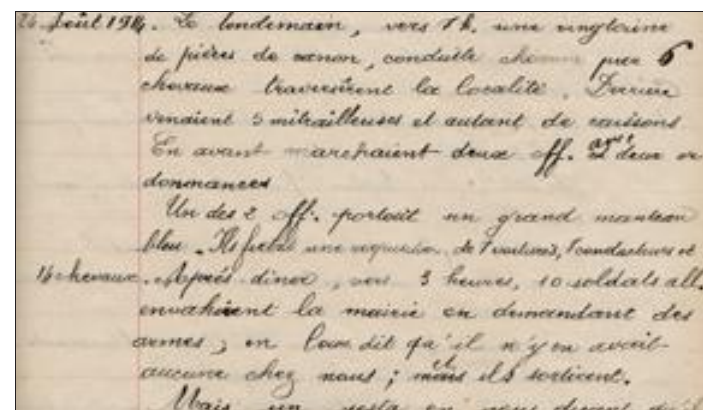 24 Août 1914. Le lendemain, vers 7 h. une vingtaine
de pièces de canon, conduite chacune par 6
chevaux traversèrent la localité. Derrière
venaient 5 mitrailleuses et autant de caissons
En avant marchaient deux off. et deux or
donnances
Un des 2 off. portait un grand manteau
bleu. Ils firent une requisition de 7 voitures, 7 conducteurs et
14 chevaux. Après diner, vers 3 heures, 10 soldats all.
envahirent la mairie en demandant des
armes ; on leur dit qu'il n'y en avait
aucune chez nous ; et ils sortirent.
Mais un resta en nous disant qu'il